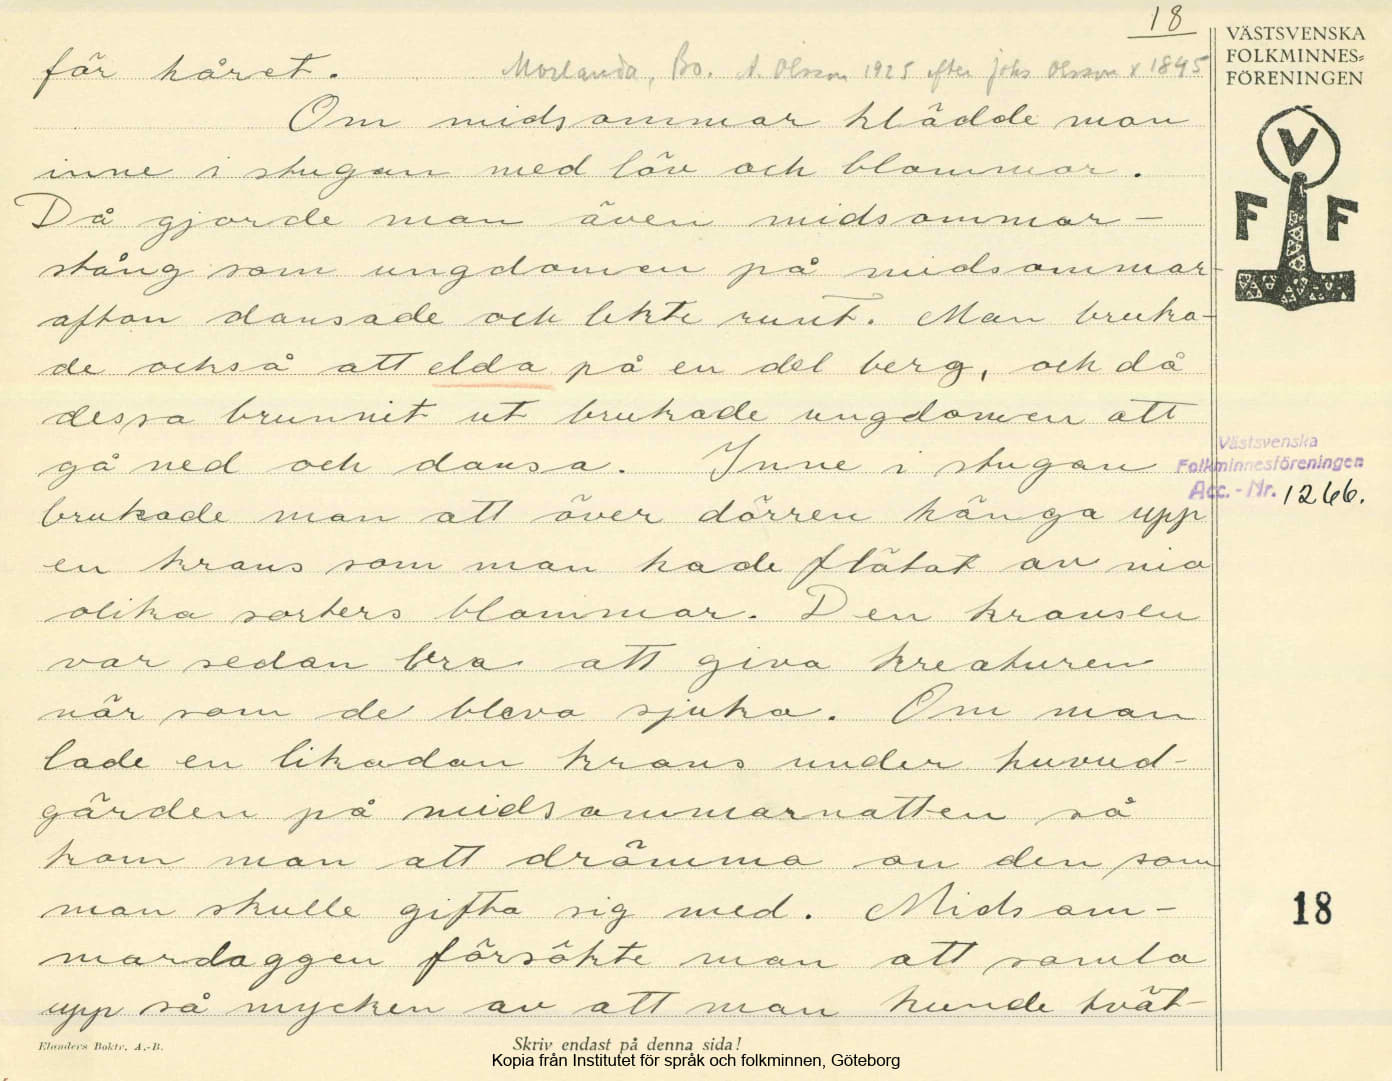 18
VÄSTSVENSKA
FOLKMINNES=
FÖRENINGEN
V
F F
Morlanda, Bo. A. Olsson 1925 efter Johs Olsson x 1845
får håret.
Om midsommar klädde man
inne i stugan med löv och blommor.
Då gjorde man även midsommar-
stång som ungdomen på midsommar-
afton dansade och lekte runt. Man bruka-
de också att elda på en del berg, och då
dessa brunnit ut brukade ungdomen att
gå ned och dansa. Inne i stugan
brukade man att över dörren hänga upp
en krans som man hade flätat av nio
olika sorters blommor. Den kransen
var sedan bra att giva kreaturen
när som de bleva sjuka. Om man
lade en likadan krans under huvud-
gärden på midsommarnatten så
kom man att drömma om den som
man skulle gifta sig med. Midsom-
mardaggen försökte man att samla
upp så mycken av att man kunde tvät-
Västsvenska
Folkminnesföreningen
Acc.-Nr. 1266.
18
Elanders Boktr. A.-B.
Skriv endast på denna sida!
Kopia från Institutet för språk och folkminnen, Göteborg